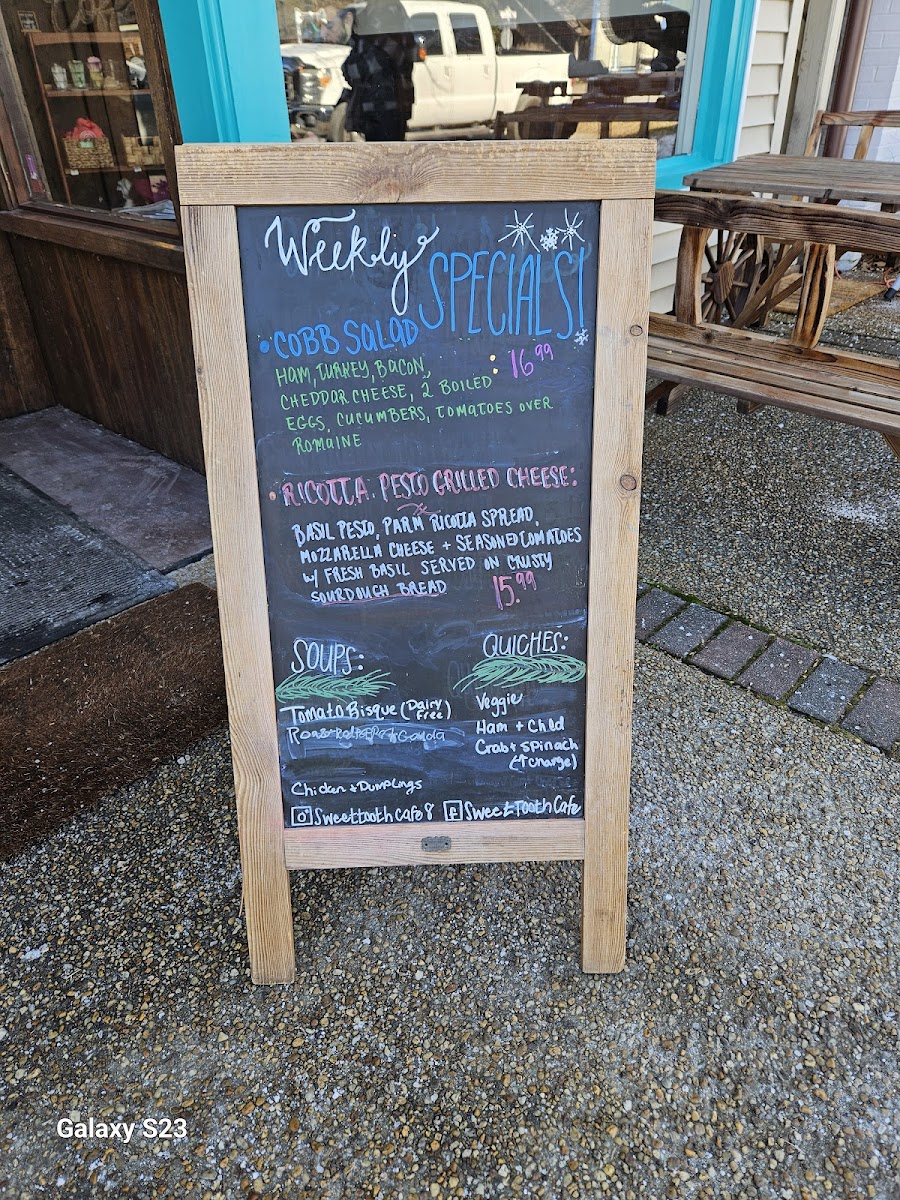 Weekly
SPECIALS!
• COBB SALAD
HAM, TURKEY, BACON,
CHEDDAR CHEESE, 2 BOILED
EGGS, CUCUMBERS, TOMATOES OVER
ROMAINE
16.99
• RICOTTA PESTO GRILLED CHEESE:
BASIL PESTO, PARM RICOTTA SPREAD,
MOZZARELLA CHEESE + SEASONED TOMATOES
W/ FRESH BASIL SERVED ON CRUSTY
SOURDOUGH BREAD
15.99
SOUPS:
Tomato Bisque (Dairy Free)
Gouda
Chicken & Dumplings
QUICHES:
Veggie
Ham + Chd
Crab + Spinach
(↑ Charge)
Sweettoothcafe8
SweetToothCafe
Galaxy S23